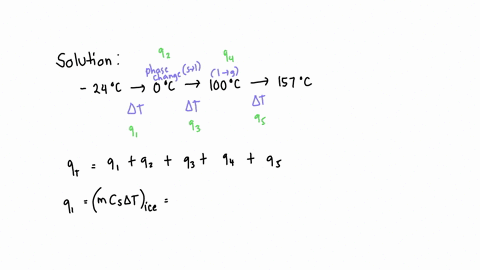 Solution:
q₂ q₄
phase change (s→l) (l→g)
- 24°C → 0°C → 100°C → 157°C
ΔT ΔT ΔT
q₁ q₃ q₅
q_T = q₁ + q₂ + q₃ + q₄ + q₅
q₁ = (m Cs ΔT)ice =